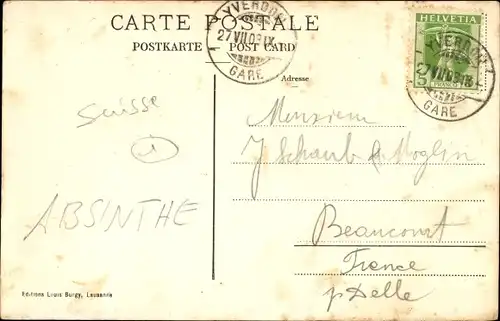 CARTE POSTALE
POSTKARTE POST CARD
Adresse
YVERDON
27 VII 09 IX
GARE
HELVETIA
5
FRANCO
YVERDON
27 VII 09
GARE
Suisse
ABSINTHE
Monsieur
J Schaub & Moglin
Beaucourt
France
p Delle
Editions Louis Burgy, Lausanne